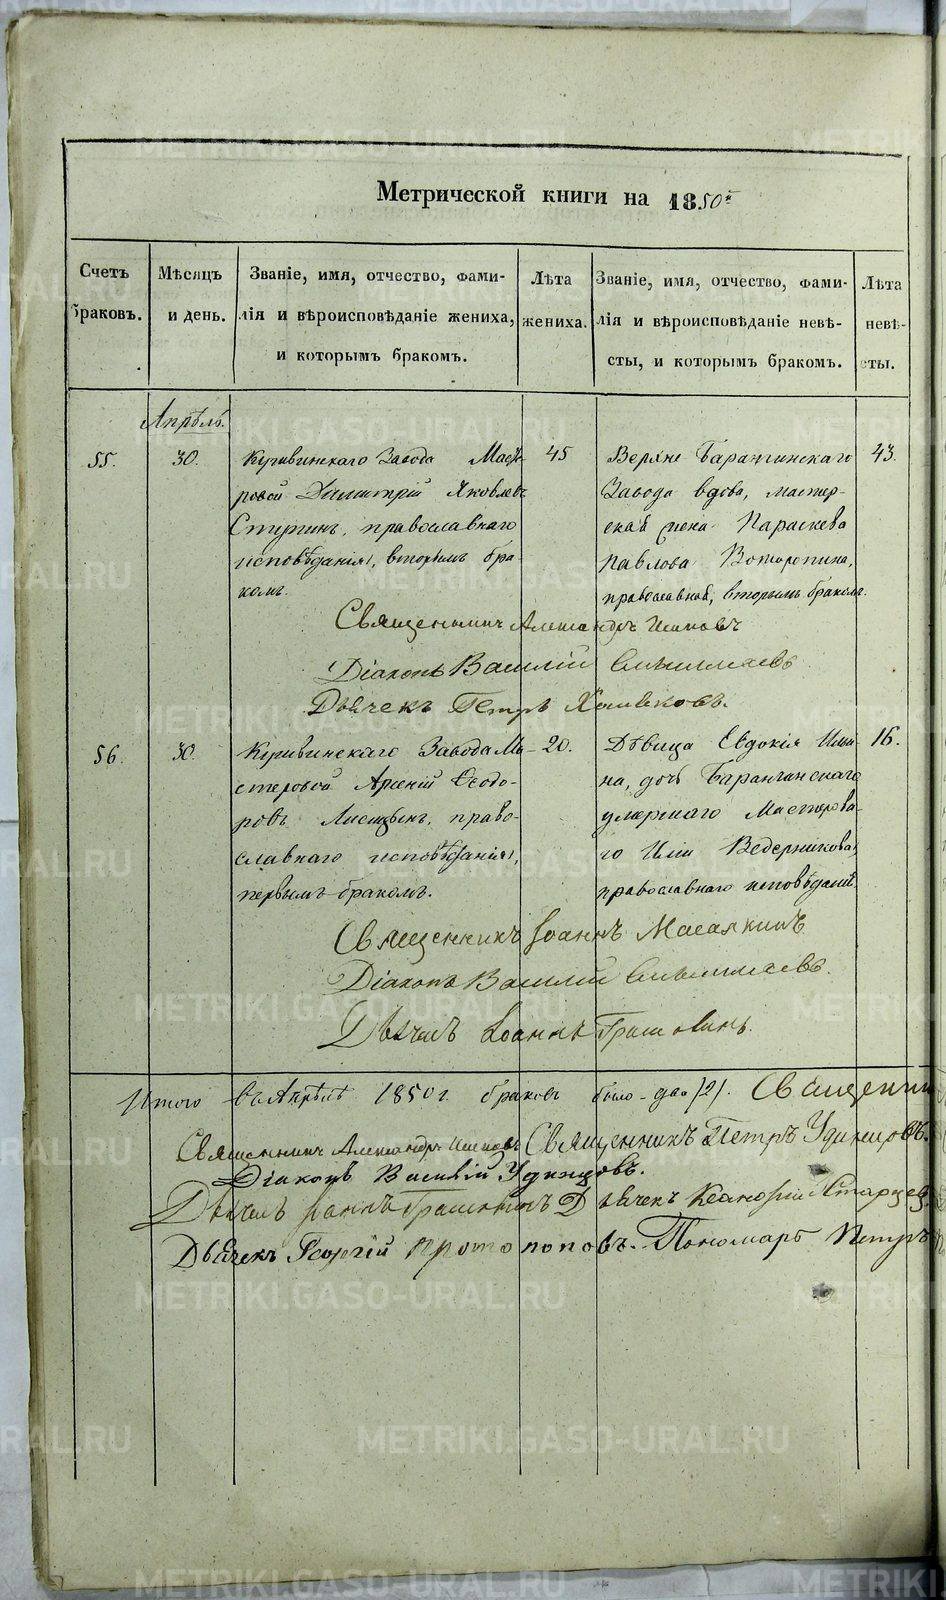 Метрической книги на 1850й
Счетъ браковъ.
Мѣсяцъ и день.
Званіе, имя, отчество, фами-
лія и вѣроисповѣданіе жениха,
и которымъ бракомъ.
Лѣта жениха.
Званіе, имя, отчество, фами-
лія и вѣроисповѣданіе невѣ-
сты, и которымъ бракомъ.
Лѣта невѣ-
сты.
Апрѣль.
55.
30.
Кушвинскаго Завода Масте-
ровой Димитрій Яковлевъ
православнаго
исповѣданія, вторымъ бра-
комъ.
45
Верхне Баранчинскаго
Завода вдова, мастер-
ская жена Параскева
Павлова
православной, вторымъ бракомъ.
43.
Священникъ Александръ
Діаконъ Василій
Дьячекъ Петръ Хлынковъ.
56.
30.
Кушвинскаго Завода Ма-
стеровой Арсеній Ѳеодо-
ровъ право-
славнаго исповѣданія,
первымъ бракомъ.
20.
Дѣвица Евдокія Ильи-
на, дочь Баранчинскаго
умершаго Мастерова-
го Ильи Ведерникова,
православнаго исповѣданія.
16.
Священникъ Іоаннъ
Діаконъ Василій
Дьячекъ Іоаннъ
Итого въ Апрѣлѣ 1850 г. браковъ было два /2/. Священник
Священникъ Александръ Священникъ Петръ Удинцовъ.
Діаконъ Василій Удинцовъ.
Дьячекъ Іоаннъ Дьячекъ Старцев
Дьячекъ Георгій Протопоповъ. Пономарь Петръ
METRIKI.GASO-URAL.RU